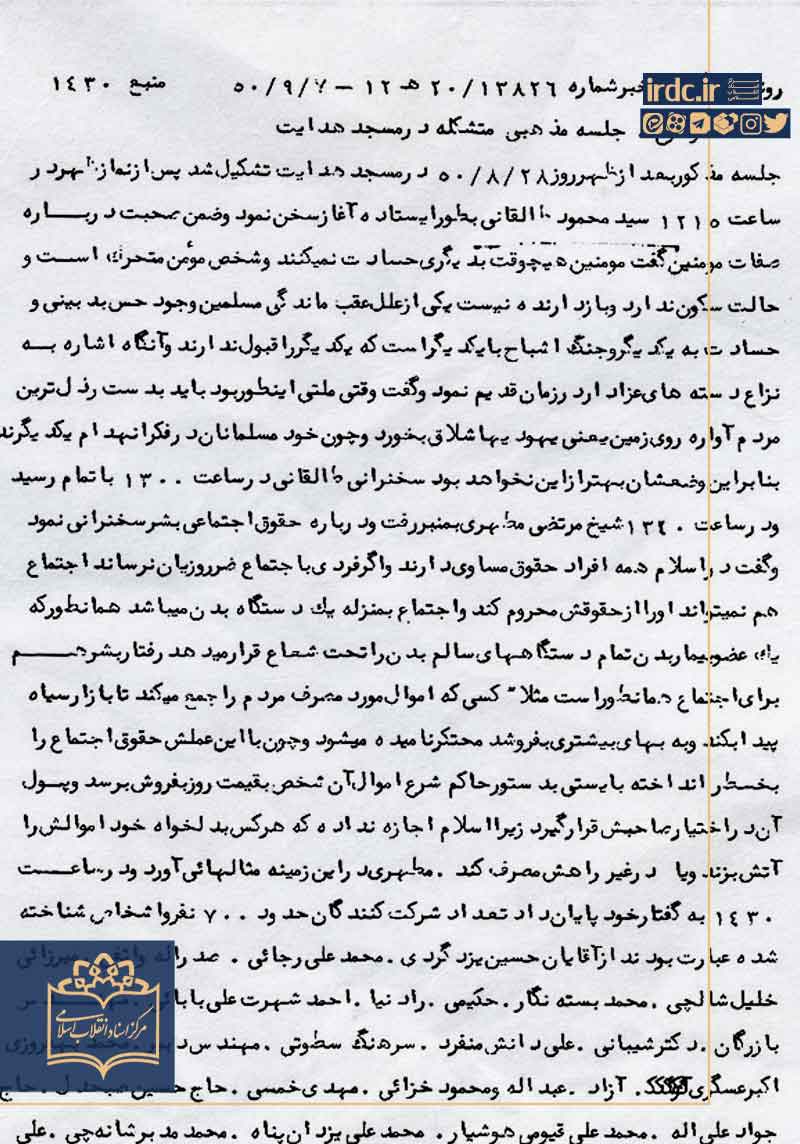 رو خبرشماره ۲۰/۱۳۸۲۶ هـ ۱۲ – ۵۰/۹/۷ منبع ۱۴۳۰
irdc.ir
جلسه مذهبی متشکله در مسجد هدایت
جلسه مذکور بعد از ظهر روز ۵۰/۸/۲۸ در مسجد هدایت تشکیل شد پس از نماز ظهر در
ساعت ۱۲۱۵ سید محمود طالقانی بطور ایستاده آغاز سخن نمود وضمن صحبت درباره
صفات مومنین گفت مومنین هیچوقت بدیگری حسادت نمیکنند وشخص مؤمن متحرک است و
حالت سکون ندارد وبازدارنده نیست یکی از علل عقب ماندگی مسلمین وجود حس بدبینی و
حسادت به یکدیگر وجنگ اشباح با یکدیگر است که یکدیگر را قبول ندارند وآنگاه اشاره به
نزاع دسته های عزادار درزمان قدیم نمود وگفت وقتی ملتی اینطور بود باید بدست رذل ترین
مردم آواره روی زمین یعنی یهودیها شلاق بخورد وچون خود مسلمانان در فکر انهدام یکدیگرند
بنابراین وضعشان بهتر از این نخواهد بود سخنرانی طالقانی در ساعت ۱۳۰۰ با تمام رسید
ودر ساعت ۱۳۴۰ شیخ مرتضی مطهری بمنبر رفت ودرباره حقوق اجتماعی بشر سخنرانی نمود
وگفت در اسلام همه افراد حقوق مساوی دارند واگر فردی با جتماع ضرر وزیان نرساند اجتماع
هم نمیتواند اورا از حقوقش محروم کند واجتماع بمنزله یك دستگاه بدن میباشد همانطور که
یك عضو بیمار بدن تمام دستگاههای سالم بدن را تحت شعاع قرار میدهد رفتار بشر هـم
برای اجتماع همانطور است مثلا" کسی که اموال مورد مصرف مردم را جمع میکند تا بازار سیاه
پیدا بکند وبه بهای بیشتری بفروشد محتکر نامیده میشود وچون با این عملش حقوق اجتماع را
بخطر انداخته بایستی بدستور حاکم شرع اموال آن شخص بقیمت روز بفروش برسد وپول
آن در اختیار صاحبش قرار گیرد زیرا اسلام اجازه نداده که هر کس بدلخواه خود اموالش را
آتش بزند ویا در غیر راهش مصرف کند . مطهری در این زمینه مثالهائی آورد ودر ساعت
۱۴۳۰ به گفتار خود پایان داد تعداد شرکت کنندگان حدود ۷۰۰ نفر واشخاص شناخته
شده عبارت بودند از آقایان حسین یزدگردی . محمد علی رجائی . صدراله میرزائی
خلیل شالچی . محمد بسته نگار . حکیمی . راد نیا . احمد شهرت علی بابائی
بازرگان . دکتر شیبانی . علی دانش منفرد . سرهنگ سطوتی . مهندس محمد بهروزی
اکبر عسگری . آزاد . عبداله ومحمود خزائی . مهدی خمسی . حاج حسین صبحدل . حاج
جواد علی اله . محمد علی قیومی هوشیار . محمد علی یزدان پناه . محمد مدیر شانه چی . علی
مرکز اسناد انقلاب اسلامی